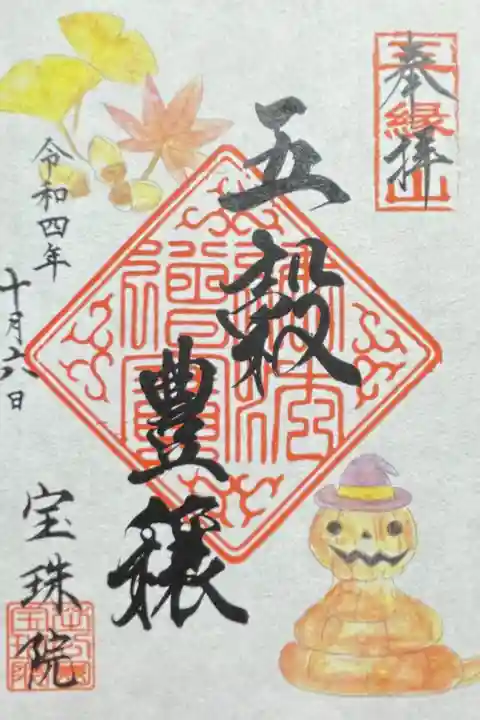 奉拝
五穀
豊穣
令和四年
十月六日
宝珠院